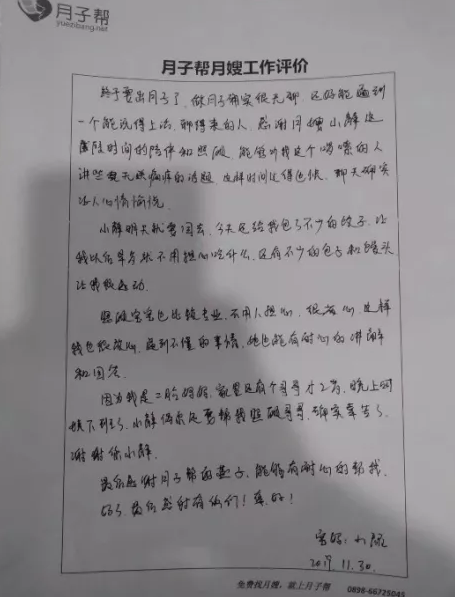 月子帮
yuezibang.net
月子帮月嫂工作评价
终于要出月子了，做月子确实很无聊，还好能遇到
一个能说得上话，聊得来的人，感谢月嫂小静这
段时间的陪伴和照顾，能够听我这个啰嗦的人
讲些无关痛痒的话题，这样时间过得也快，聊天确实
让人心情愉悦。
小静明天就要回去，今天还给我包了不少的饺子，让
我以后早上不用担心吃什么，还有不少的包子和馒头，
让我很感动。
照顾宝宝也比较专业，不用人担心，很放心，这样
我也很放心，碰到不懂的事情，她也能有耐心的讲解
和回答。
因为我是二胎妈妈，家里还有个哥哥才2岁，晚上
下班了，小静偶尔还要帮我照顾哥哥，确实辛苦了，
谢谢你小静。
最后感谢月子帮的燕子，能够有耐心的帮我
最后感谢有你们！真好！
宝妈：小
2019.11.30.
免费找月嫂，就上月子帮 0898-66725045